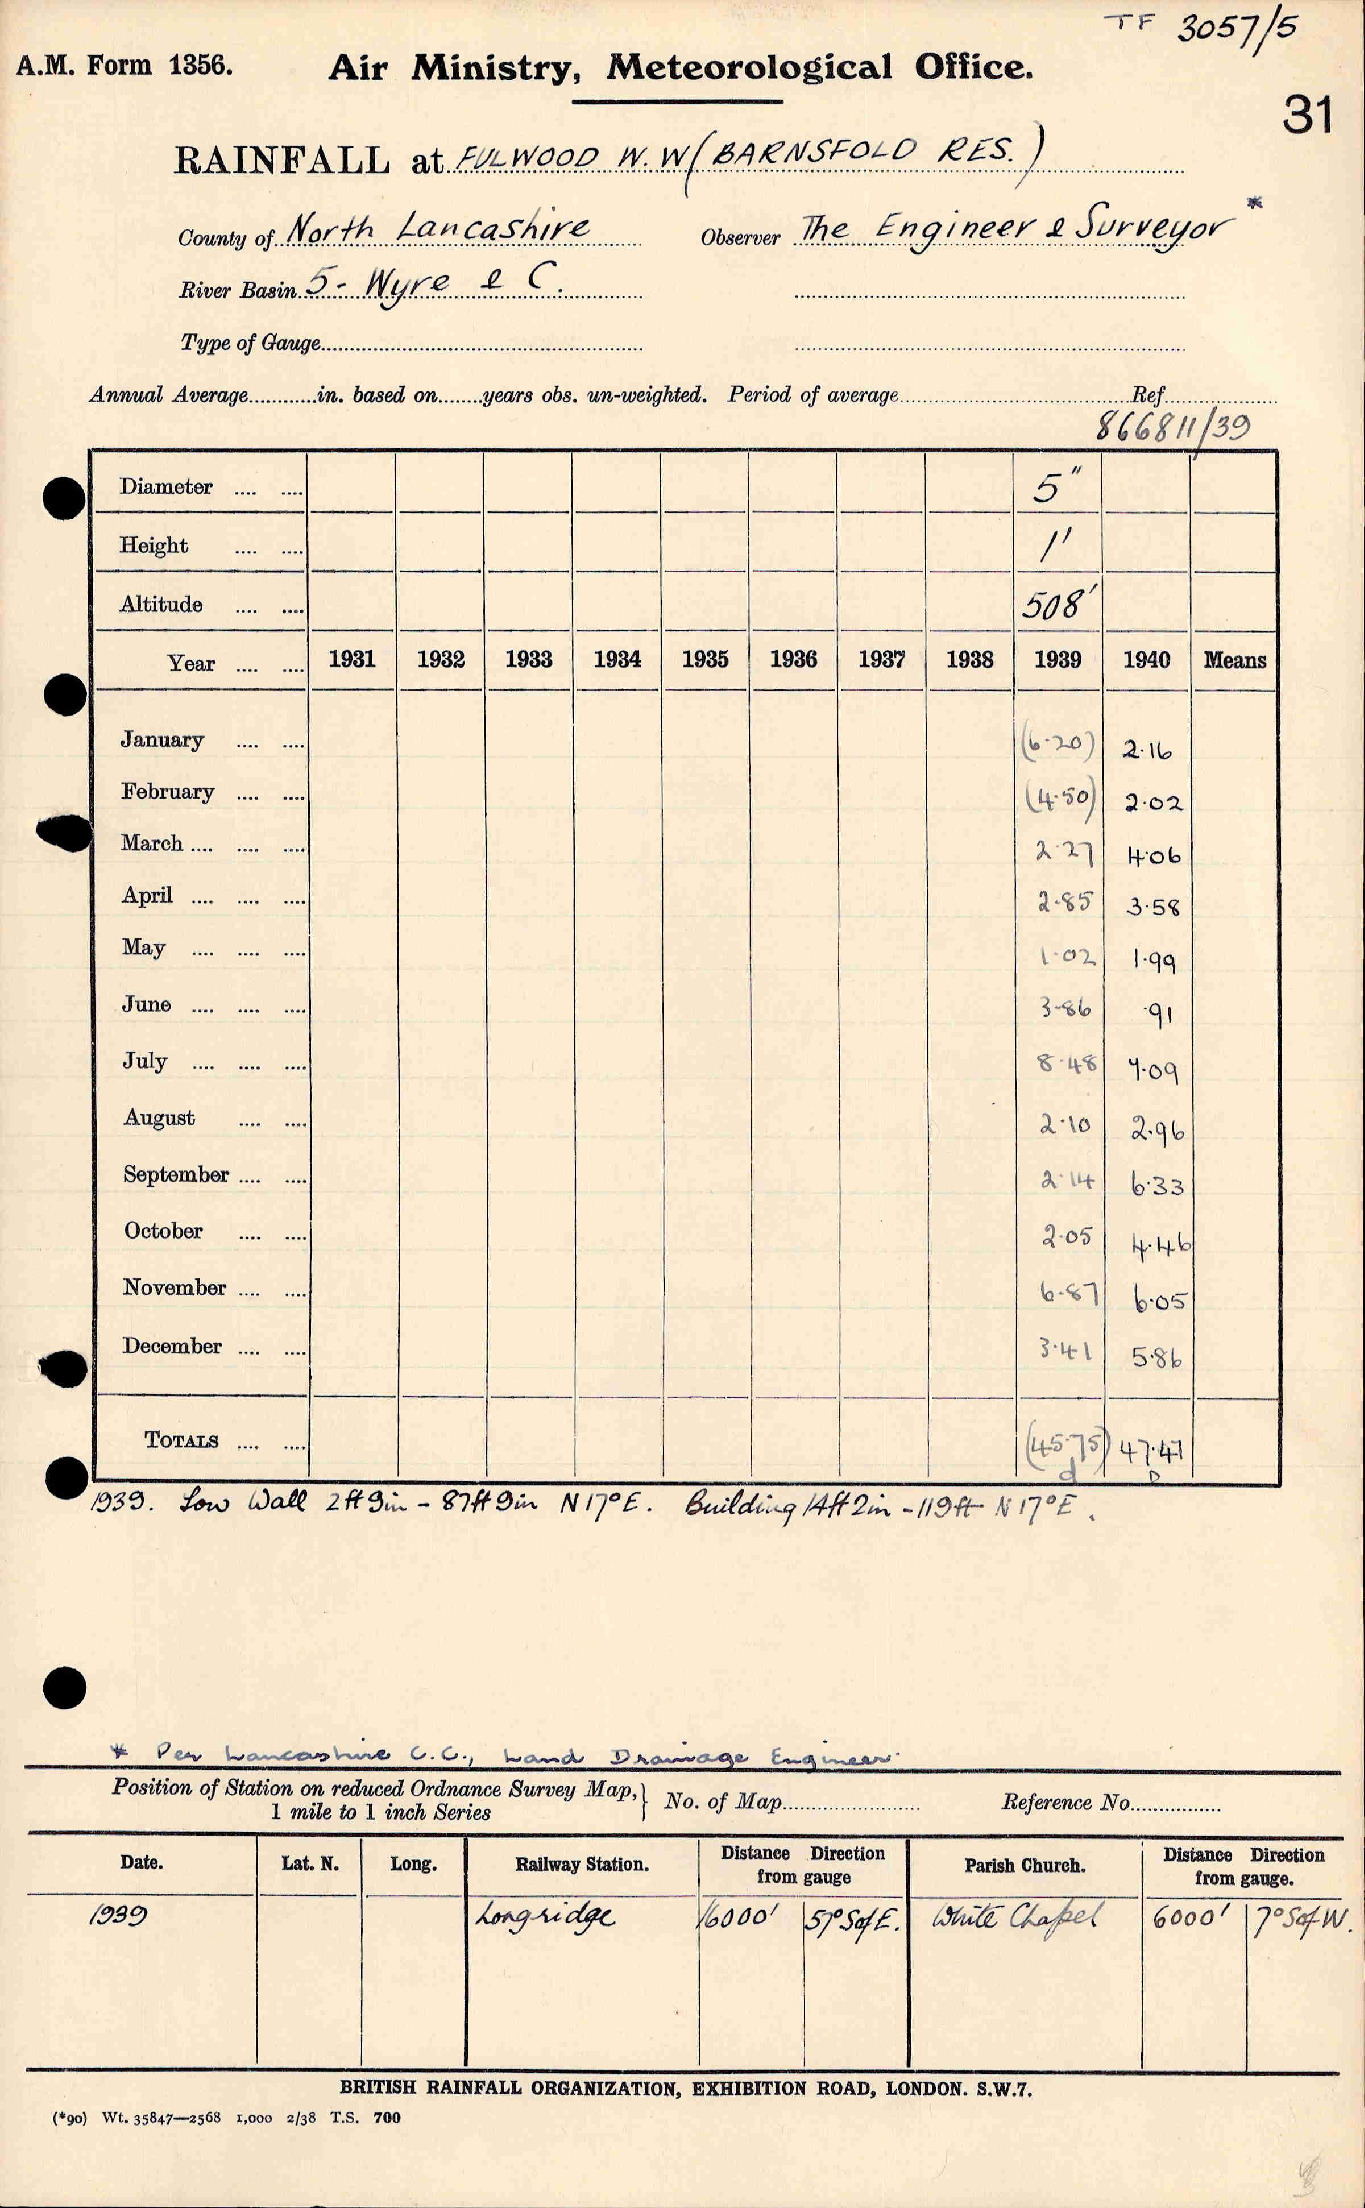 TF 3057/5
A.M. Form 1356. Air Ministry, Meteorological Office.
31
RAINFALL at FULWOOD W.W (BARNSFOLD RES.)
County of North Lancashire Observer The Engineer & Surveyor *
River Basin 5 - Wyre & C.
Type of Gauge
Annual Average............in. based on........years obs. un-weighted. Period of average Ref.
866811/39
Diameter .... .... 5"
Height .... .... 1'
Altitude .... .... 508'
Year .... .... 1931 1932 1933 1934 1935 1936 1937 1938 1939 1940 Means
January .... .... (6·20) 2·16
February .... .... (4·50) 2·02
March .... .... .... 2·27 4·06
April .... .... .... 2·85 3·58
May .... .... .... 1·02 1·99
June .... .... .... 3·86 ·91
July .... .... .... 8·48 7·09
August .... .... 2·10 2·96
September .... .... 2·14 6·33
October .... .... 2·05 4·46
November .... .... 6·87 6·05
December .... .... 3·41 5·86
TOTALS .... .... (45·75) 47·47
d D
1939. Low Wall 2ft 9in - 87ft 9in N 17° E. Building 14ft 2in - 119ft N 17° E.
* Per Lancashire C.C., Land Drainage Engineer.
Position of Station on reduced Ordnance Survey Map, 1 mile to 1 inch Series } No. of Map Reference No.
Date. Lat. N. Long. Railway Station. Distance Direction from gauge Parish Church. Distance Direction from gauge.
1939 Longridge 16000' 57° S of E. White Chapel 6000' 7° S of W.
BRITISH RAINFALL ORGANIZATION, EXHIBITION ROAD, LONDON. S.W.7.
(*90) Wt. 35847—2568 1,000 2/38 T.S. 700